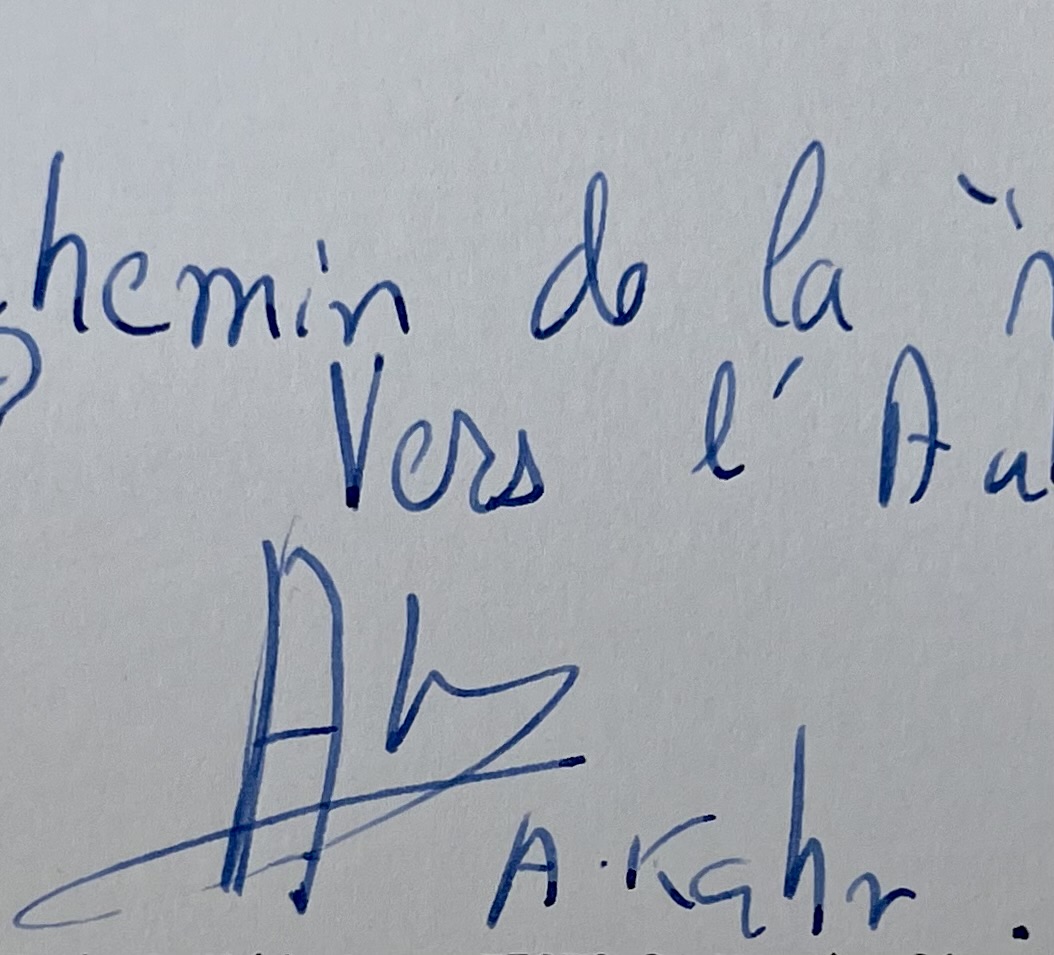 hemin de la
Vers l'Au
A. Kahn.